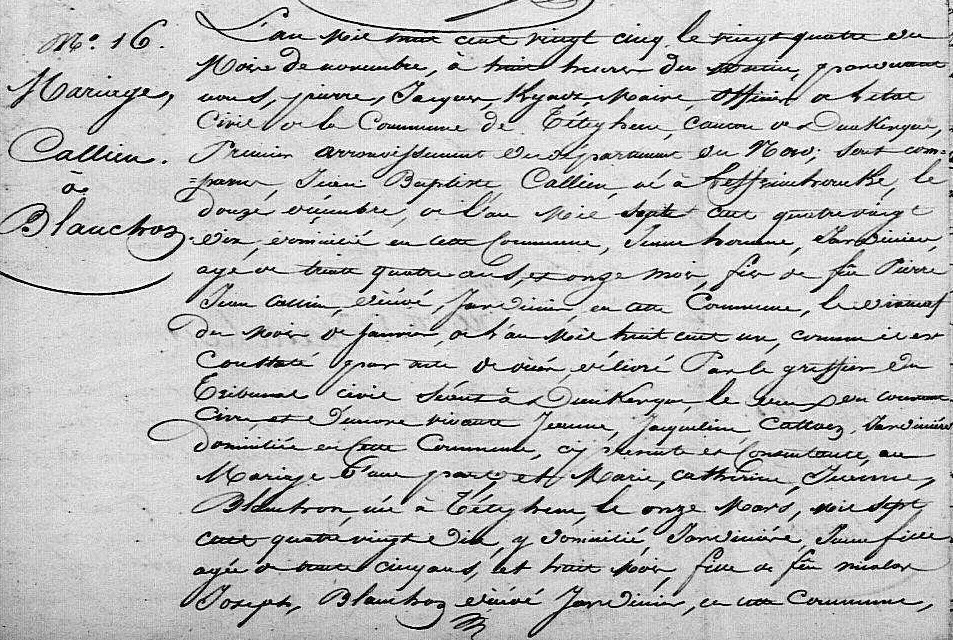 N.° 16.
Mariage,
Callieu.
&
Blanchoz
L'an Mil huit cent vingt cinq le vingt quatre du
Mois de novembre, à huit heures du matin, pardevant
nous, pierre, Jacques, Maire, officier de l'etat
Civil de la Commune de Téteghem, canton de Dunkerque,
Premier arrondissement du département du Nord, sont com=
=parus, Jean Baptiste Callieu né à Leffrinckoucke, le
douze décembre, de l'an Mil sept cent quatre vingt
dix, domicilié en cette Commune, Jeune homme, Jardinier,
agé de trente quatre ans, et onze mois, fils de feu Pierre
Jean Callieu, décédé, Jardinier, en cette Commune, le dixneuf
du Mois de janvier, de l'an Mil huit cent un, comme il est
Constaté par acte de décès délivré Par le greffier du
Tribunal civil séant à Dunkerque, le deux du courant
Civil, et Demore vivante Jeanne, Jacqueline Jardinière
domiciliée en Cette Commune, cy présente et Consentante, au
Mariage d'une part, et Marie, catherine, Jeanne,
née à Téteghem, le onze Mars, mil sept
cent quatre vingt dix, y domicilié Jardinière, Jeune fille
agée de trente cinq ans, et huit Mois, fille de feu nicolas
Joseph, Blanchoz décédé Jardinier, en cette Commune,